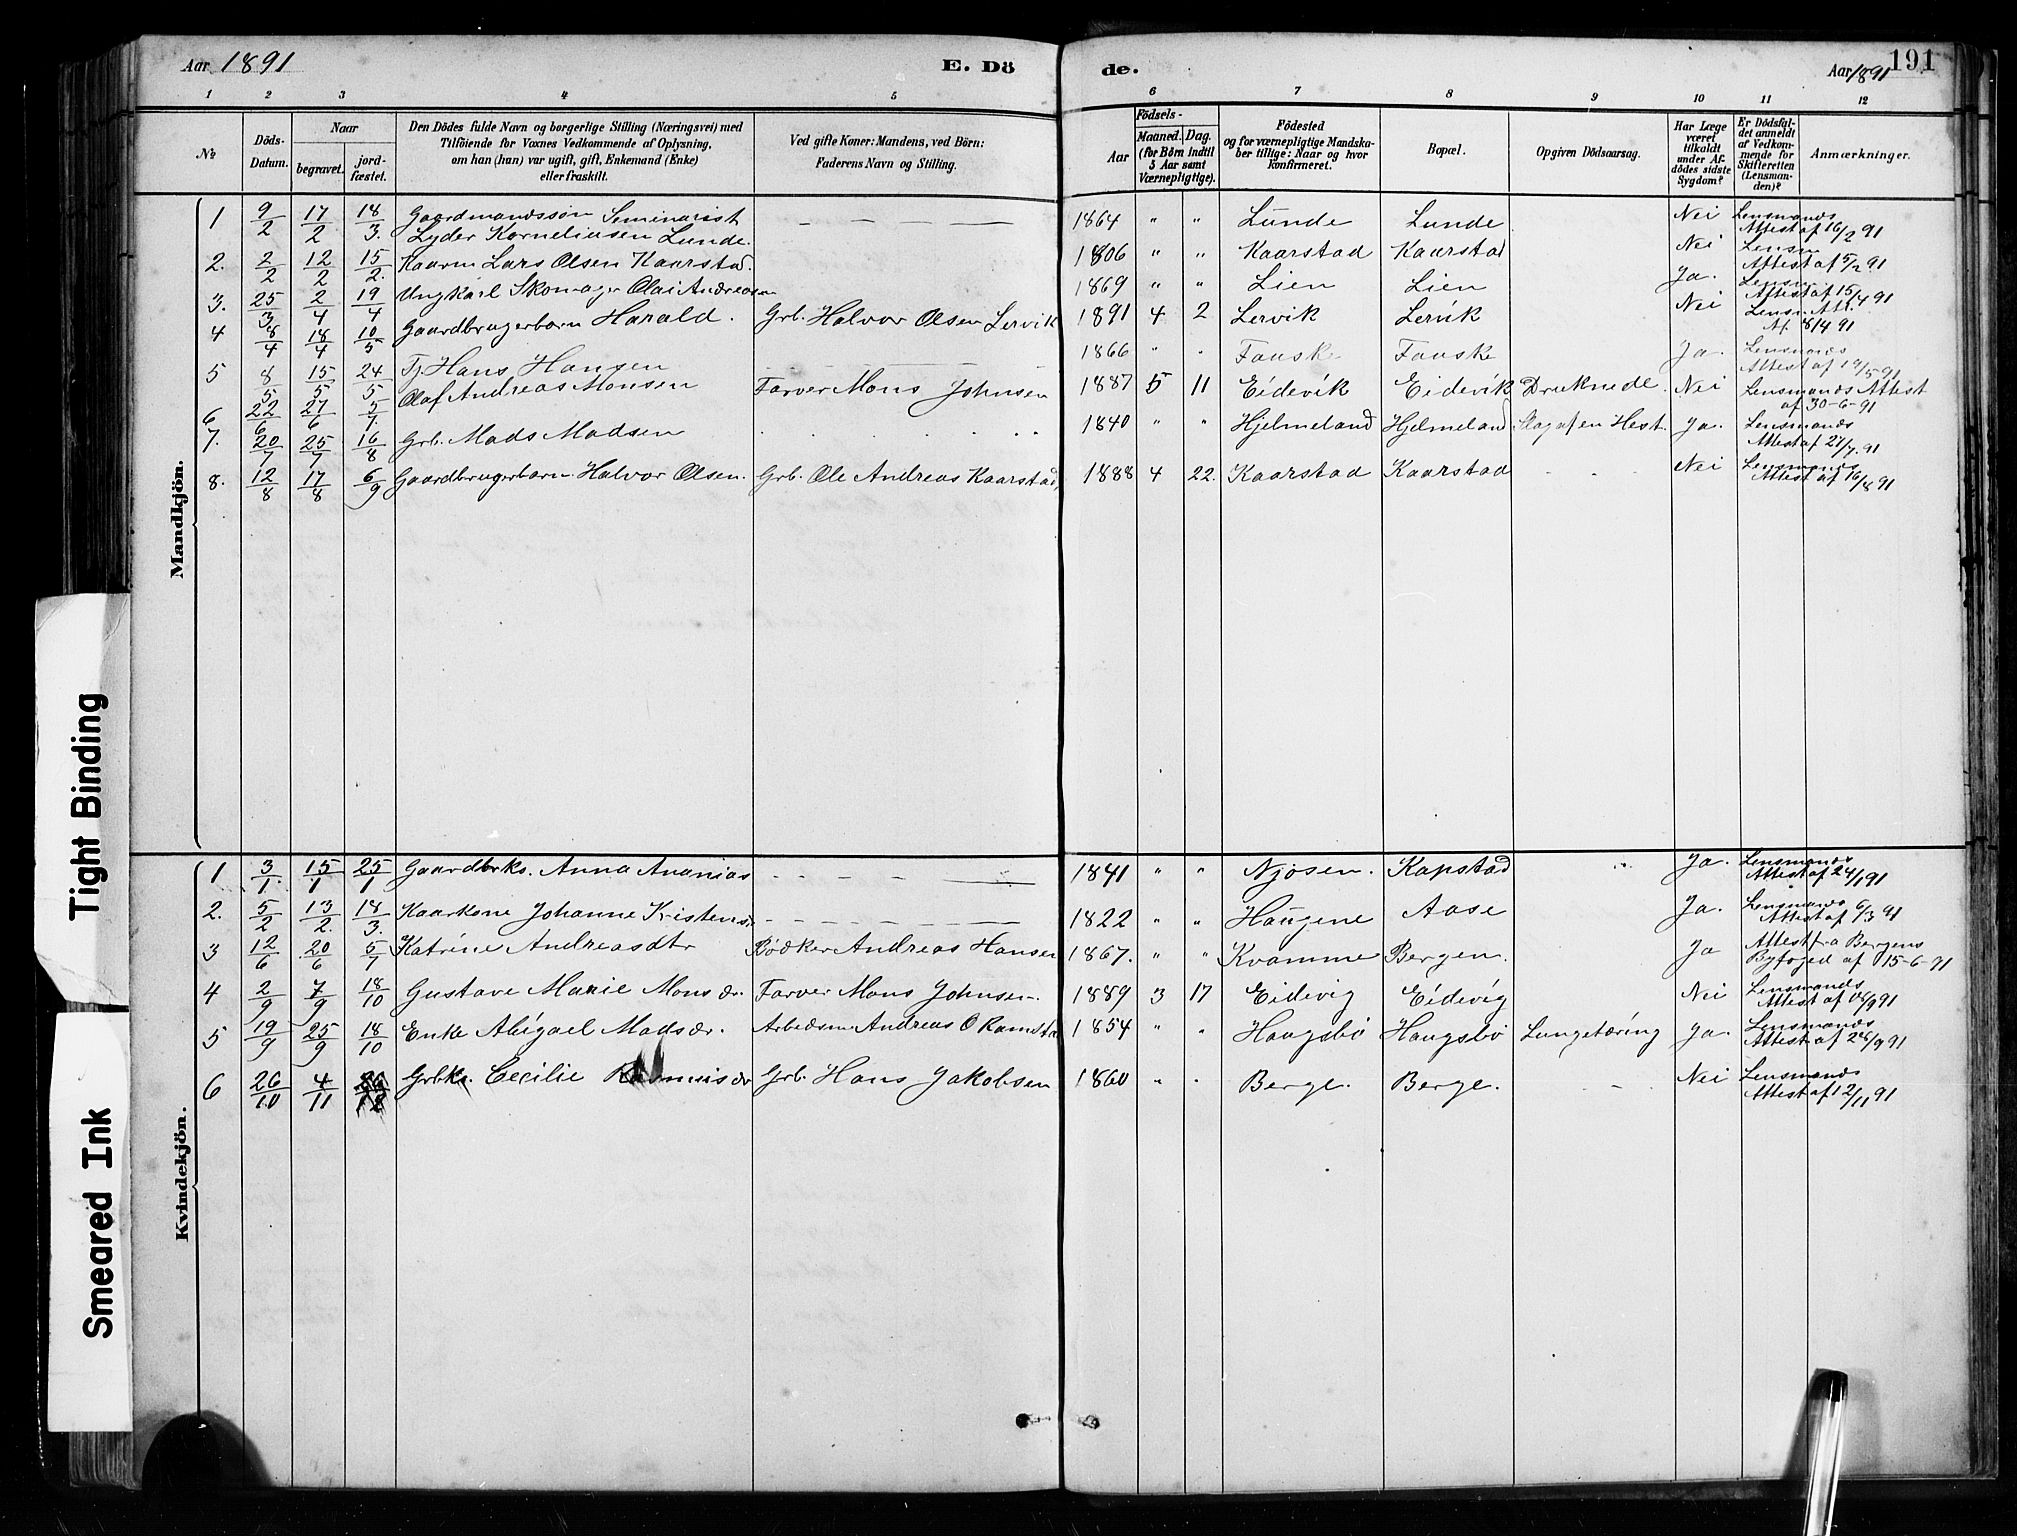 Aar 1891
E. Dö
de.
Aar 1891
191
1 2 3 4 5 6 7 8 9 10 11 12
No.
Döds-Datum.
Naar
begravet.
jord-fæstet.
Den Dödes fulde Navn og borgerlige Stilling (Næringsvei) med
Tilföiende for Voxnes Vedkommende af Oplysning,
om han (hun) var ugift, gift, Enkemand (Enke)
eller fraskilt.
Ved gifte Koner: Mandens, ved Börn:
Faderens Navn og Stilling.
Födsels-
Aar
Maaned. Dag.
(for Börn indtil
5 Aar samt
Værnepligtige).
Födested
og for værnepligtige Mandska-
ber tillige: Naar og hvor
konfirmeret.
Bopæl.
Opgiven Dödsaarsag.
Har Læge
været
tilkaldt
under Af-
dödes sidste
Sygdom?
Er Dödsfal-
det anmeldt
af Vedkom-
mende for
Skifteretten
(Lensman-
den)?
Anmærkninger.
Mandkjön.
1 9/2 17/2 18/3. Gaardmandssön Seminarist Lyder Korneliusen Lunde. 1864 " " Lunde Lunde Nei Lensmands Attest af 16/2 91
2. 2/2 12/2 15/2. Kaarm Lars Olsen Kaarstad. 1806 " " Kaarstad Kaarstad Nei Lensm Attest af 5/2 91
3. 25/3 2/4 19/4 Ungkarl Skomager Olai Andreasen 1869 " " Lien Lien Ja. Lensm. Attest af 15/4 91
4 8/4 18/4 10/5 Gaardbrugerbarn Harald. Grb. Halvor Olsen Lervik 1891 4 2 Lervik Lervik Nei Lensm. Att. Af. 8/4 91
5 8/5 15/5 24/5 Tj. Hans Hansen 1866 " " Fauske Fauske Ja. Lensmands Attest af 19/5 91
6 22/6 27/6 5/7. Olaf Andreas Monsen Farver Mons Johnsen 1887 5 11 Eidevik Eidevik Druknede. Nei Lensmands Attest af 30-6-91
7. 20/7 25/7 16/8 Grb. Mads Madsen 1840 " " Hjelmeland Hjelmeland Slag af en Hest. Ja. Lensmands Attest af 27/7. 91
8. 12/8 17/8 6/9 Gaardbrugerbarn Halvor Olsen. Grb. Ole Andreas Kaarstad, 1888 4 22. Kaarstad Kaarstad Nei Lensmands Attest af 16/8 91
Kvindekjön.
1 3/1. 15/1 25/1 Gaardbrks. Anna Ananias 1841 " " Njösen. Kapstad Ja. Lensmands Attest af 24/1 91
2. 5/2 13/2. 18/3. Kaarkone Johanne Kristensdr 1822 " " Haugene Aase Ja. Lensmands Attest af 6/3 91
3 12/6 20/6 5/7 Katrine Andreasdtr Bödker Andreas Hansen 1867. " " Kvamme Bergen. Ja Attest fra Bergens Byfoged af 15-6-91
4 2/9 7/9 18/10 Gustave Marie Monsdr. Farver Mons Johnsen. 1889 3 17 Eidevig Eidevig Nei Lensmands Attest af 91
5 19/9 25/9 18/10 Enke Abigael Madsdr. Arbeidsm Andreas O Ramsta 1854 " " Haugsbö Haugsbö Lungetæring Ja. Lensmands Attest af 26/9 91
6 26/10 4/11 Grbks. Cecilie Rasmusdr Grb. Hans Jakobsen 1860 " " Berge. Berge. Nei Lensmands Attest af 12/11 91
Tight Binding
Smeared Ink